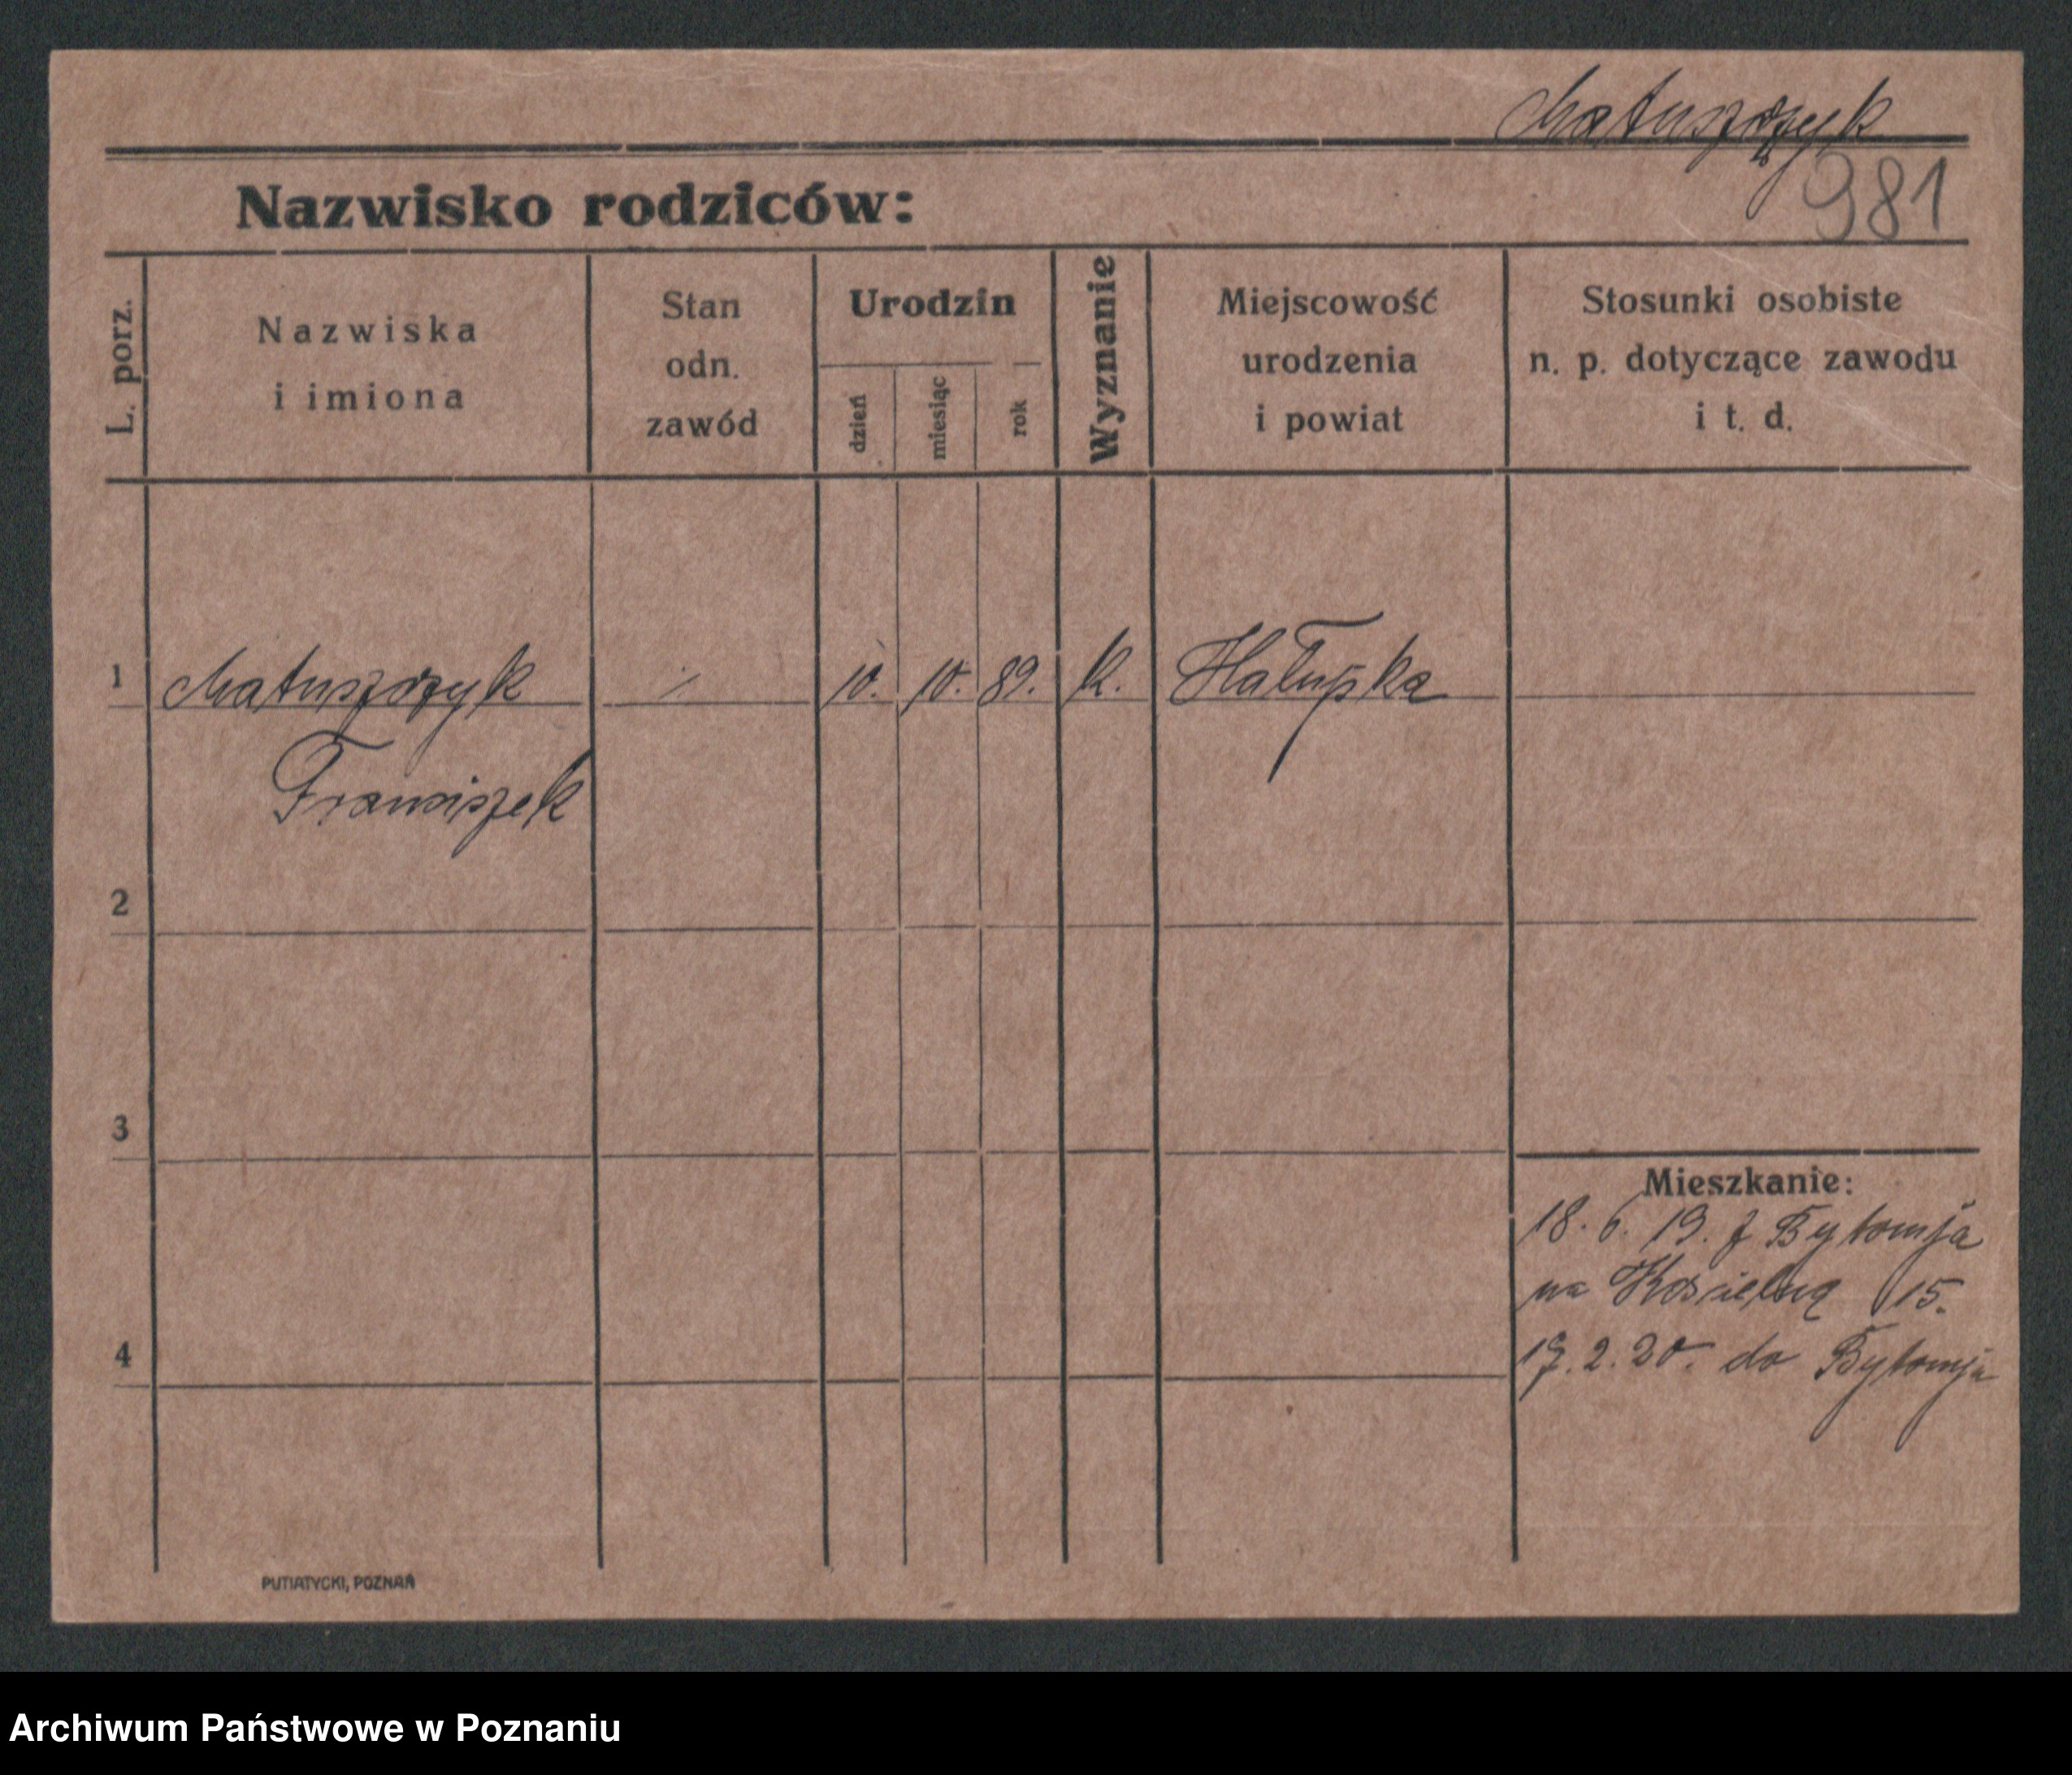 Matuszczyk
981
Nazwisko rodziców:
L. porz.
Nazwiska
i imiona
Stan
odn.
zawód
Urodzin
dzień
miesiąc
rok
Wyznanie
Miejscowość
urodzenia
i powiat
Stosunki osobiste
n. p. dotyczące zawodu
i t. d.
1 Matuszczyk 10. 10. 89. K.
Franciszek
2
3
4
Mieszkanie:
18. 6. 19. z Bytomja
na Kościelną 15.
17. 2. 20. do Bytomja
PUTIATYCKI, POZNAŃ
Archiwum Państwowe w Poznaniu